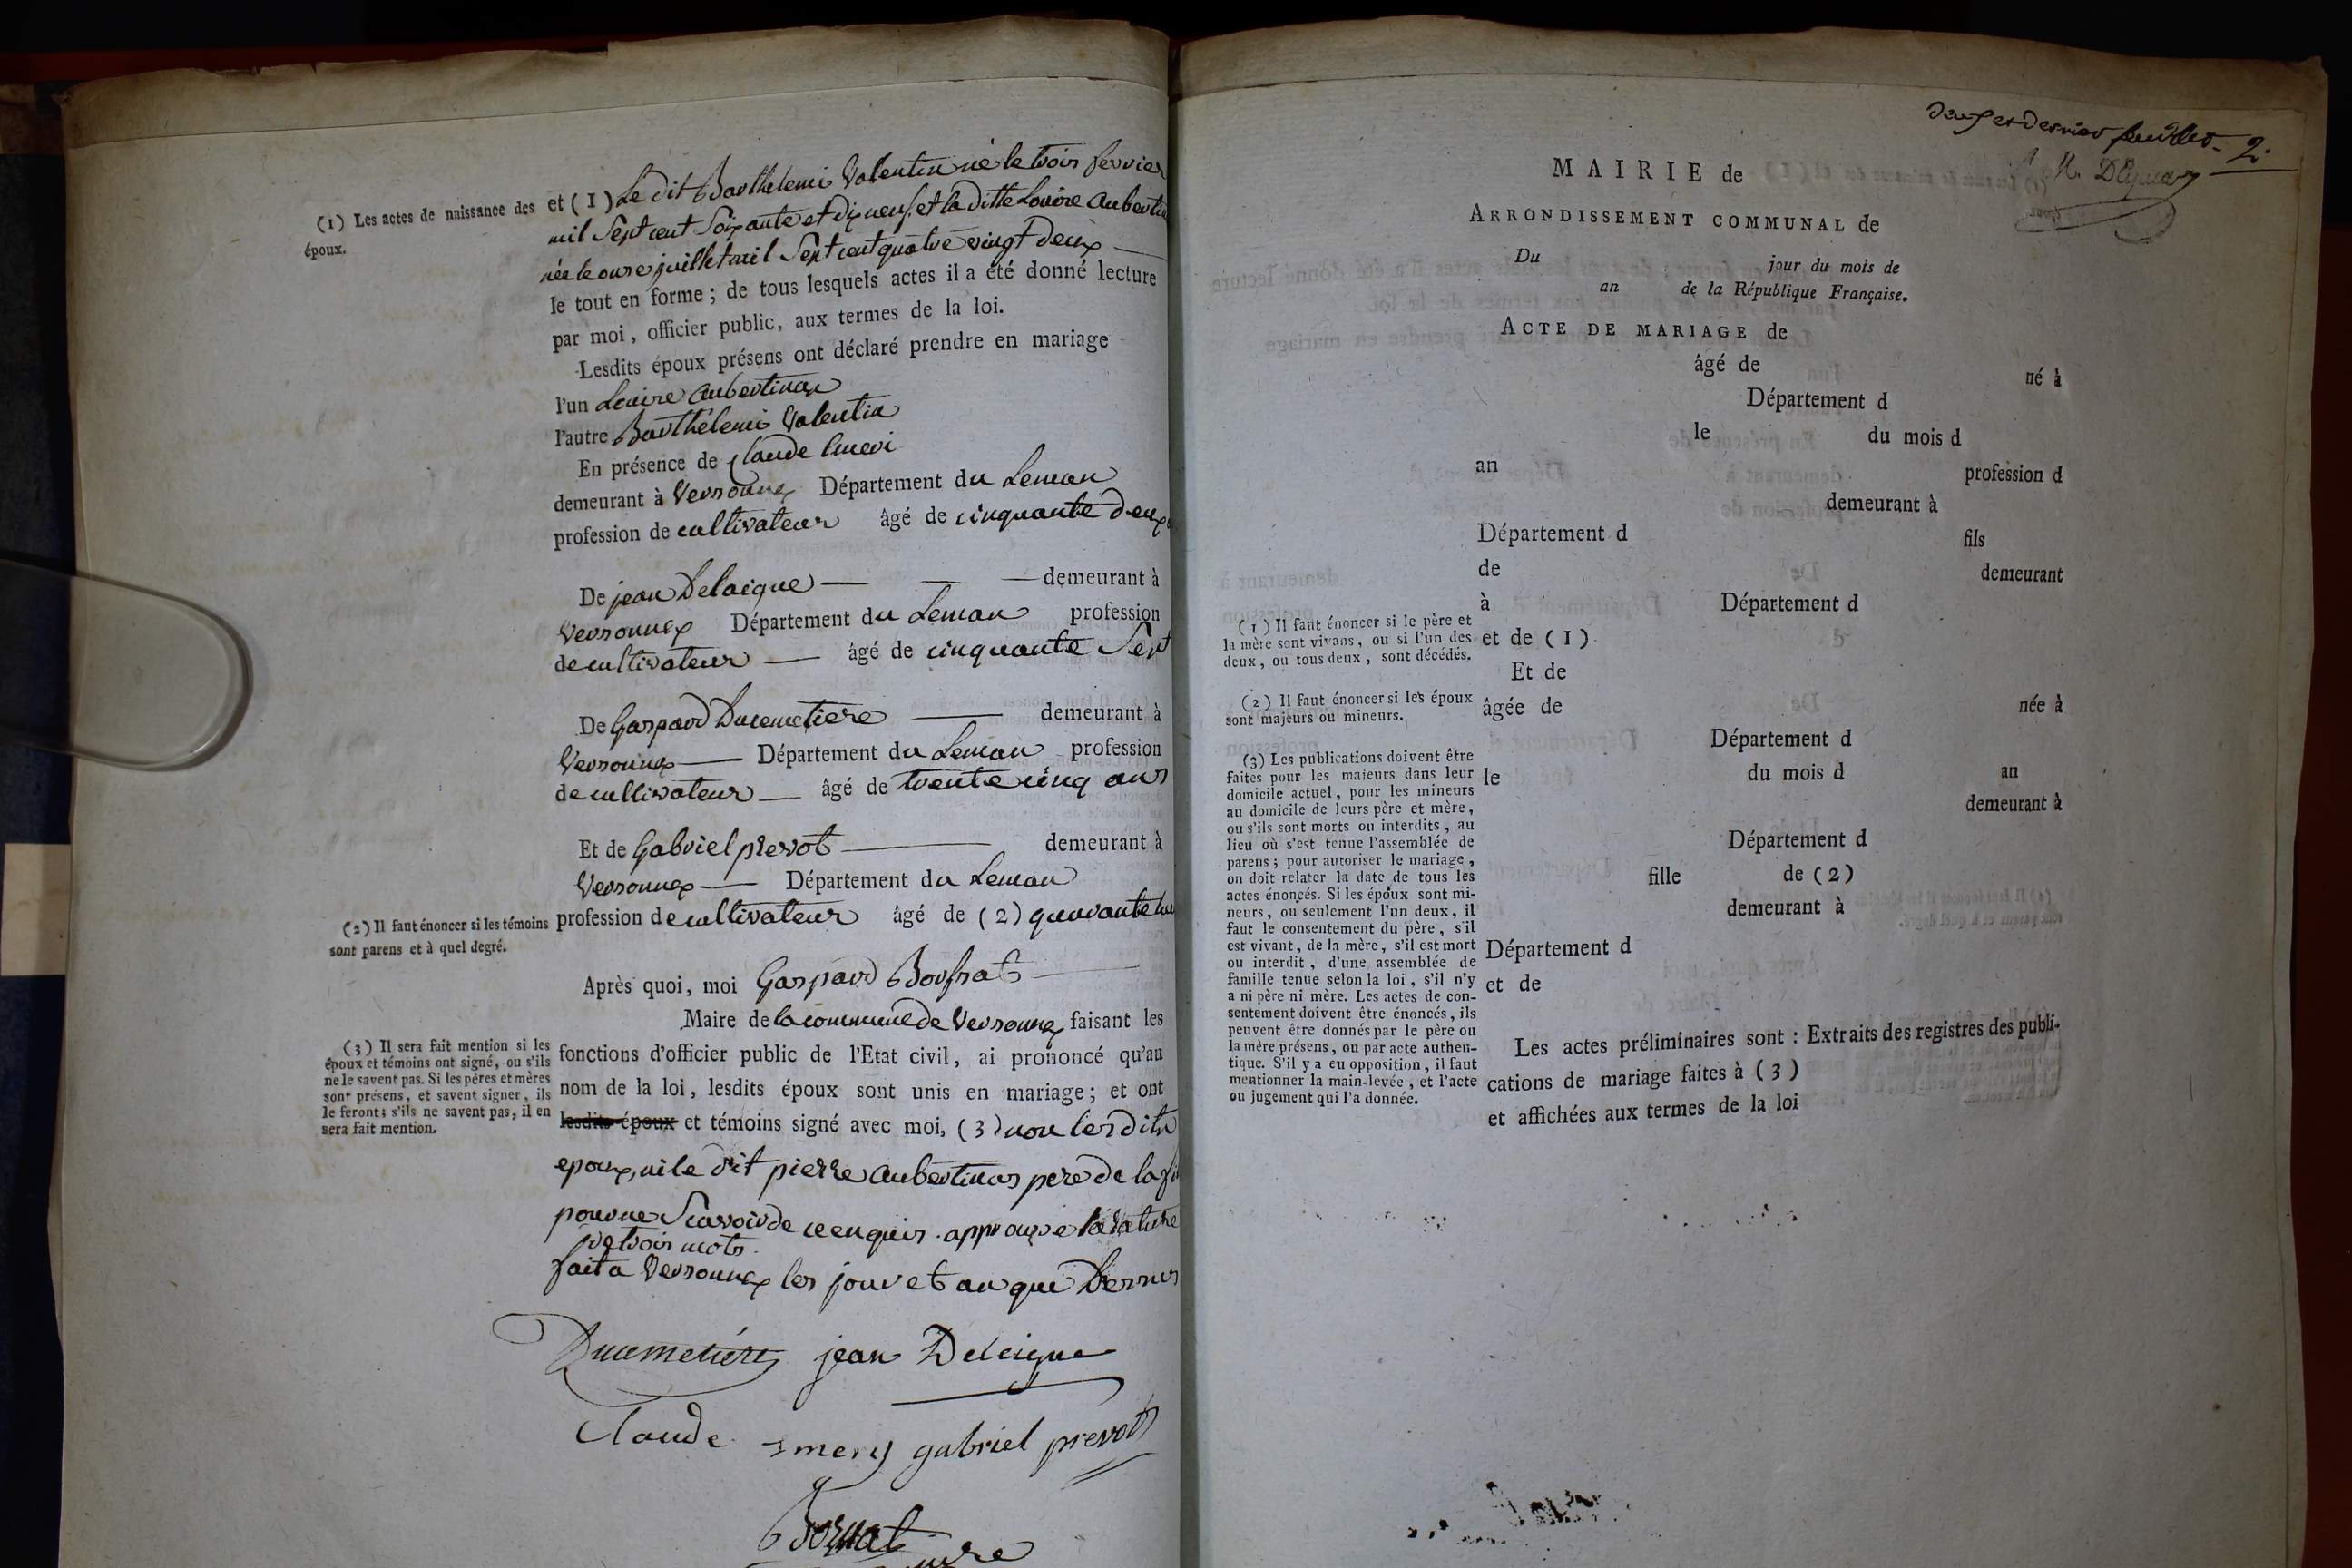 (1) Les actes de naissance des
époux.
et (1) Le dit Barthelemi Valentin né le trois fevrier
mil Sept cent Soixante et dix neuf. et la ditte Louise aubertin
née le onze juillet mil Sept cent quatre vingt Deux
le tout en forme ; de tous lesquels actes il a été donné lecture
par moi, officier public, aux termes de la loi.
Lesdits époux présens ont déclaré prendre en mariage
l'un Louise aubertinax
l'autre Barthélemi Valentin
En présence de Claude Emeri
demeurant à Versonnex Département du Leman
profession de cultivateur âgé de cinquante Deux
De jean Delaigue demeurant à
Versonnex Département du Leman profession
de cultivateur âgé de cinquante Sept
De Gaspard Ducemetiere demeurant à
Versonnex Département du Leman profession
de cultivateur âgé de trente cinq ans
Et de Gabriel prevot demeurant à
Versonnex Département du Leman
(2) Il faut énoncer si les témoins
sont parens et à quel degré.
profession de cultivateur âgé de (2) quarante
Après quoi, moi Gaspard
Maire de la commune de Versonnex faisant les
(3) Il sera fait mention si les
époux et témoins ont signé, ou s'ils
ne le savent pas. Si les pères et mères
sont présens, et savent signer, ils
le feront; s'ils ne savent pas, il en
sera fait mention.
fonctions d'officier public de l'Etat civil, ai prononcé qu'au
nom de la loi, lesdits époux sont unis en mariage; et ont
lesdits époux et témoins signé avec moi, (3) non les dits
epoux, ni le dit pierre aubertinax pere de la
pour ne Scavoir de ce enquis. approuvé la rature
de trois mots.
fait a Versonnex les jour et an que Dessus
Ducemetiere jean Deleigue
Claude Emery gabriel prevot
Bornat
maire
deux et dernier feuillet 2.
MAIRIE de
ARRONDISSEMENT COMMUNAL de
Du jour du mois de
an de la République Française.
ACTE DE MARIAGE de
âgé de né à
Département d
le du mois d
an profession d
demeurant à
Département d fils
de demeurant
à Département d
(1) Il faut énoncer si le père et
la mère sont vivans, ou si l'un des
deux, ou tous deux, sont décédés.
et de (1)
Et de
(2) Il faut énoncer si les époux
sont majeurs ou mineurs.
âgée de née à
Département d
(3) Les publications doivent être
faites pour les majeurs dans leur
domicile actuel, pour les mineurs
au domicile de leurs père et mère,
ou s'ils sont morts ou interdits, au
lieu où s'est tenue l'assemblée de
parens; pour autoriser le mariage,
on doit relater la date de tous les
actes énoncés. Si les époux sont mi-
neurs, ou seulement l'un deux, il
faut le consentement du père, s'il
est vivant, de la mère, s'il est mort
ou interdit, d'une assemblée de
famille tenue selon la loi, s'il n'y
a ni père ni mère. Les actes de con-
sentement doivent être énoncés, ils
peuvent être donnés par le père ou
la mère présens, ou par acte authen-
tique. S'il y a eu opposition, il faut
mentionner la main-levée, et l'acte
ou jugement qui l'a donnée.
le du mois d an
demeurant à
Département d
fille de (2)
demeurant à
Département d
et de
Les actes préliminaires sont : Extraits des registres des publi-
cations de mariage faites à (3)
et affichées aux termes de la loi